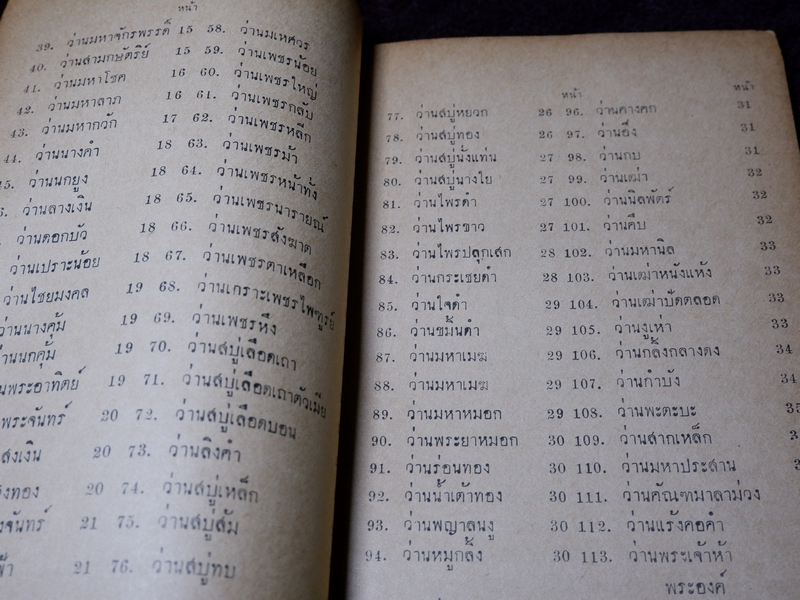 หน้า
39. ว่านมหาจักรพรรดิ์ 15 58. ว่านมเหศวร
40. ว่านสามกษัตริย์ 15 59. ว่านเพชรน้อย
41. ว่านมหาโชค 16 60. ว่านเพชรใหญ่
42. ว่านมหาลาภ 16 61. ว่านเพชรกลับ
43. ว่านมหากวัก 17 62. ว่านเพชรหลีก
44. ว่านนางคำ 18 63. ว่านเพชรม้า
45. ว่านนกยูง 18 64. ว่านเพชรหน้าทั่ง
ว่านลางเงิน 18 65. ว่านเพชรนารายณ์
ว่านดอกบัว 18 66. ว่านเพชรสังฆาต
ว่านเปราะน้อย 18 67. ว่านเพชรตาเหลือก
ว่านไชยมงคล 19 68. ว่านเกราะเพชรไพฑูรย์
ว่านนางคุ้ม 19 69. ว่านเพชรหึง
ว่านนกคุ้ม 19 70. ว่านสบู่เลือดเถา
นพระอาทิตย์ 19 71. ว่านสบู่เลือดเถาตัวเมีย
พระจันทร์ 20 72. ว่านสบู่เลือดบอน
เงิน 20 73. ว่านลิงดำ
ทอง 20 74. ว่านสบู่เหล็ก
จันทร์ 21 75. ว่านสบู่ส้ม
21 76. ว่านสบู่ทบ
หน้า หน้า
77. ว่านสบู่หยวก 26 96. ว่านคางคก 31
78. ว่านสบู่ทอง 26 97. ว่านอึ่ง 31
79. ว่านสบู่นั่งแท่น 27 98. ว่านกบ 31
80. ว่านสบู่นางใย 27 99. ว่านเฒ่า 32
81. ว่านไพรดำ 27 100. ว่านนิลพัตร์ 32
82. ว่านไพรขาว 27 101. ว่านคืบ 32
83. ว่านไพรปลุกเสก 28 102. ว่านมหานิล 33
84. ว่านกระเชยดำ 28 103. ว่านเฒ่าหนังแห้ง 33
85. ว่านใจดำ 29 104. ว่านเฒ่าปัดตลอด 33
86. ว่านขมิ้นดำ 29 105. ว่านงูเห่า 33
87. ว่านมหาเมฆ 29 106. ว่านกลิ้งกลางดง 34
88. ว่านมหาเมฆ 29 107. ว่านกำบัง 34
89. ว่านมหาหมอก 29 108. ว่านพะตะบะ 35
90. ว่านพระยาหมอก 30 109. ว่านสากเหล็ก
91. ว่านร่อนทอง 30 110. ว่านมหาประสาน
92. ว่านน้ำเต้าทอง 30 111. ว่านคัณฑมาลาม่วง
93. ว่านพญาลนงู 30 112. ว่านแร้งคอดำ
94. ว่านหมูกลิ้ง 30 113. ว่านพระเจ้าห้า
พระองค์